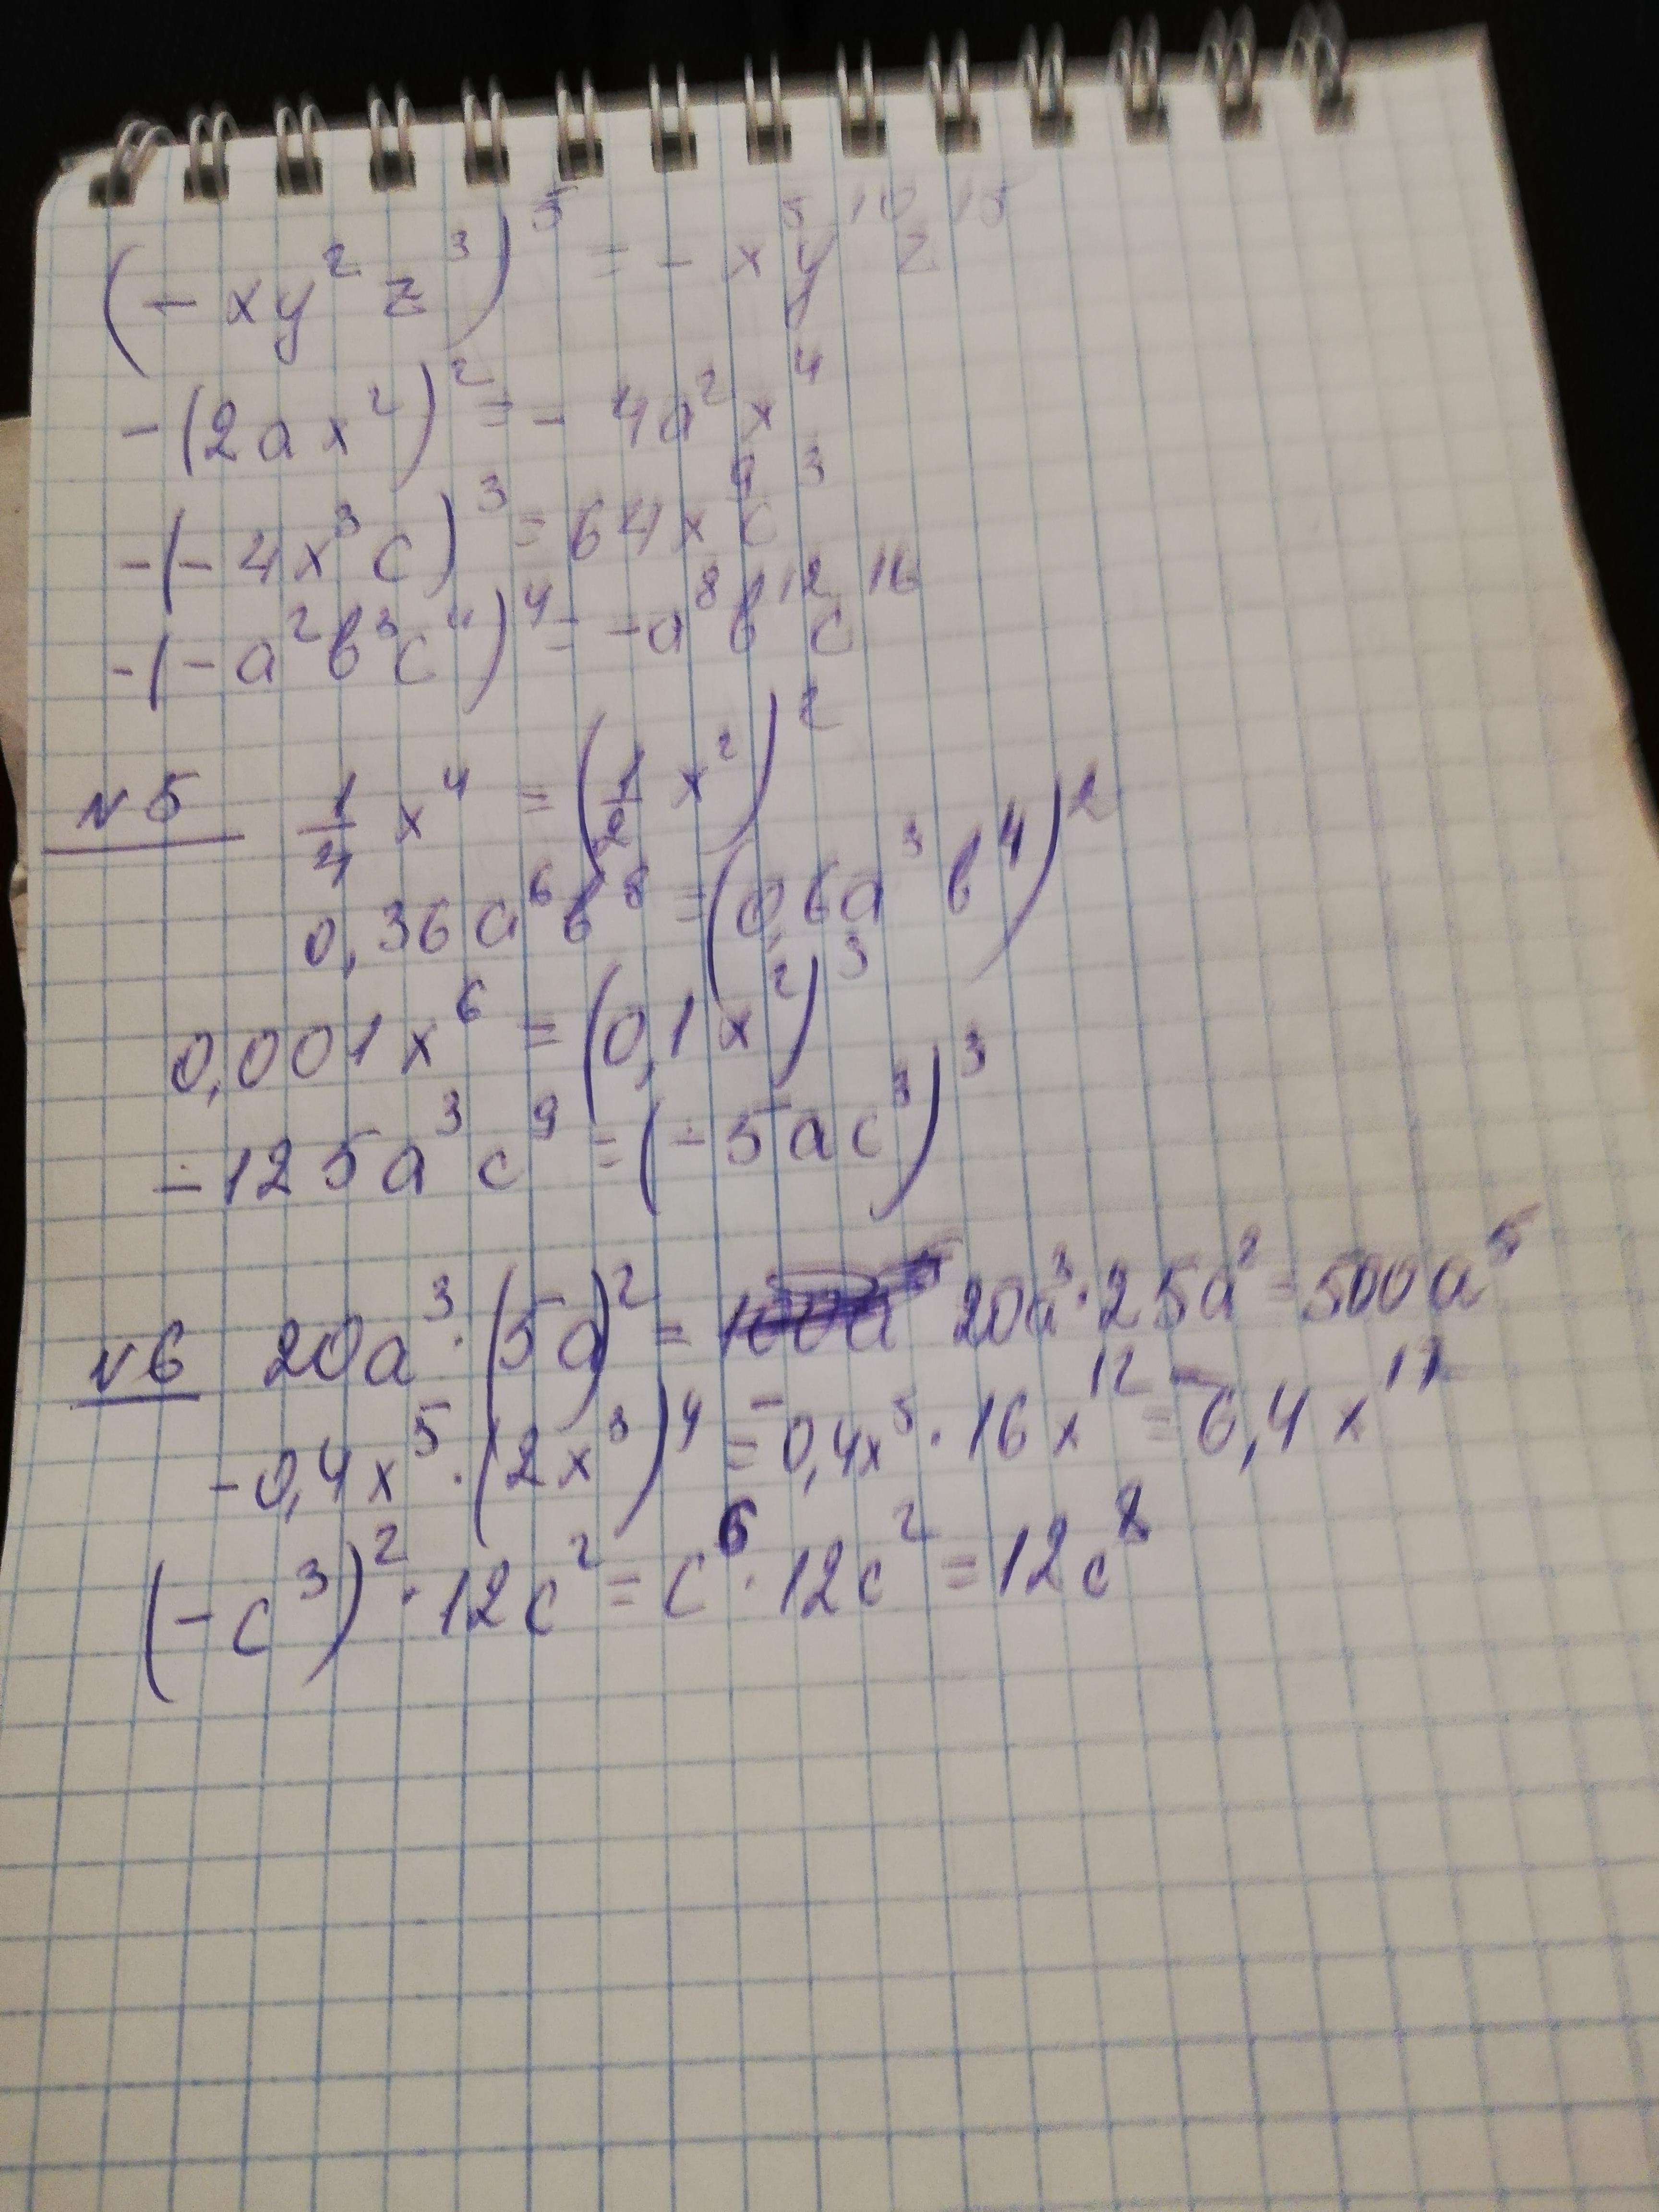 (-xy²z³)⁵ = -x⁵y¹⁰z¹⁵
-(2ax²)² = -4a²x⁴
-(-4x³c)³ = 64x⁹c³
-(-a²b³c⁴)⁴ = -a⁸b¹²c¹⁶
№5 1/4 x⁴ = (1/2 x²)²
0,36a⁶b⁸ = (0,6a³b⁴)²
0,001x⁶ = (0,1x²)³
-125a³c⁹ = (-5ac³)³
№6 20a³·(5a)² = 20a³·25a² = 500a⁵
-0,4x⁵·(2x³)⁴ = -0,4x⁵·16x¹² = -6,4x¹⁷
(-c³)²·12c² = c⁶·12c² = 12c⁸